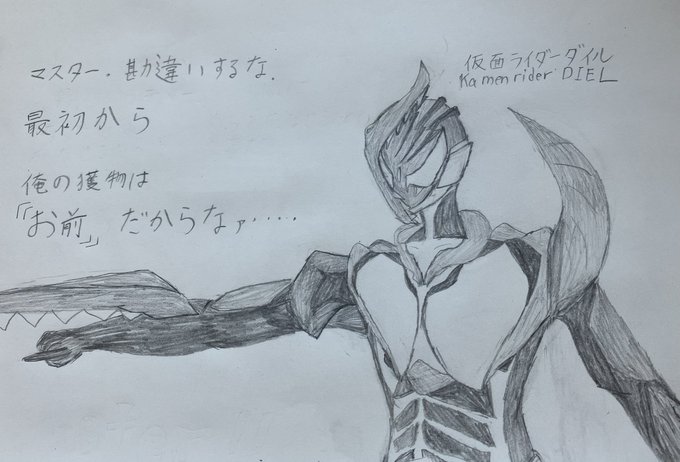 マスター、勘違いするな、
最初から
俺の獲物は
「お前」だからなァ‥‥‥
仮面ライダーダイル
Kamen rider DIEL